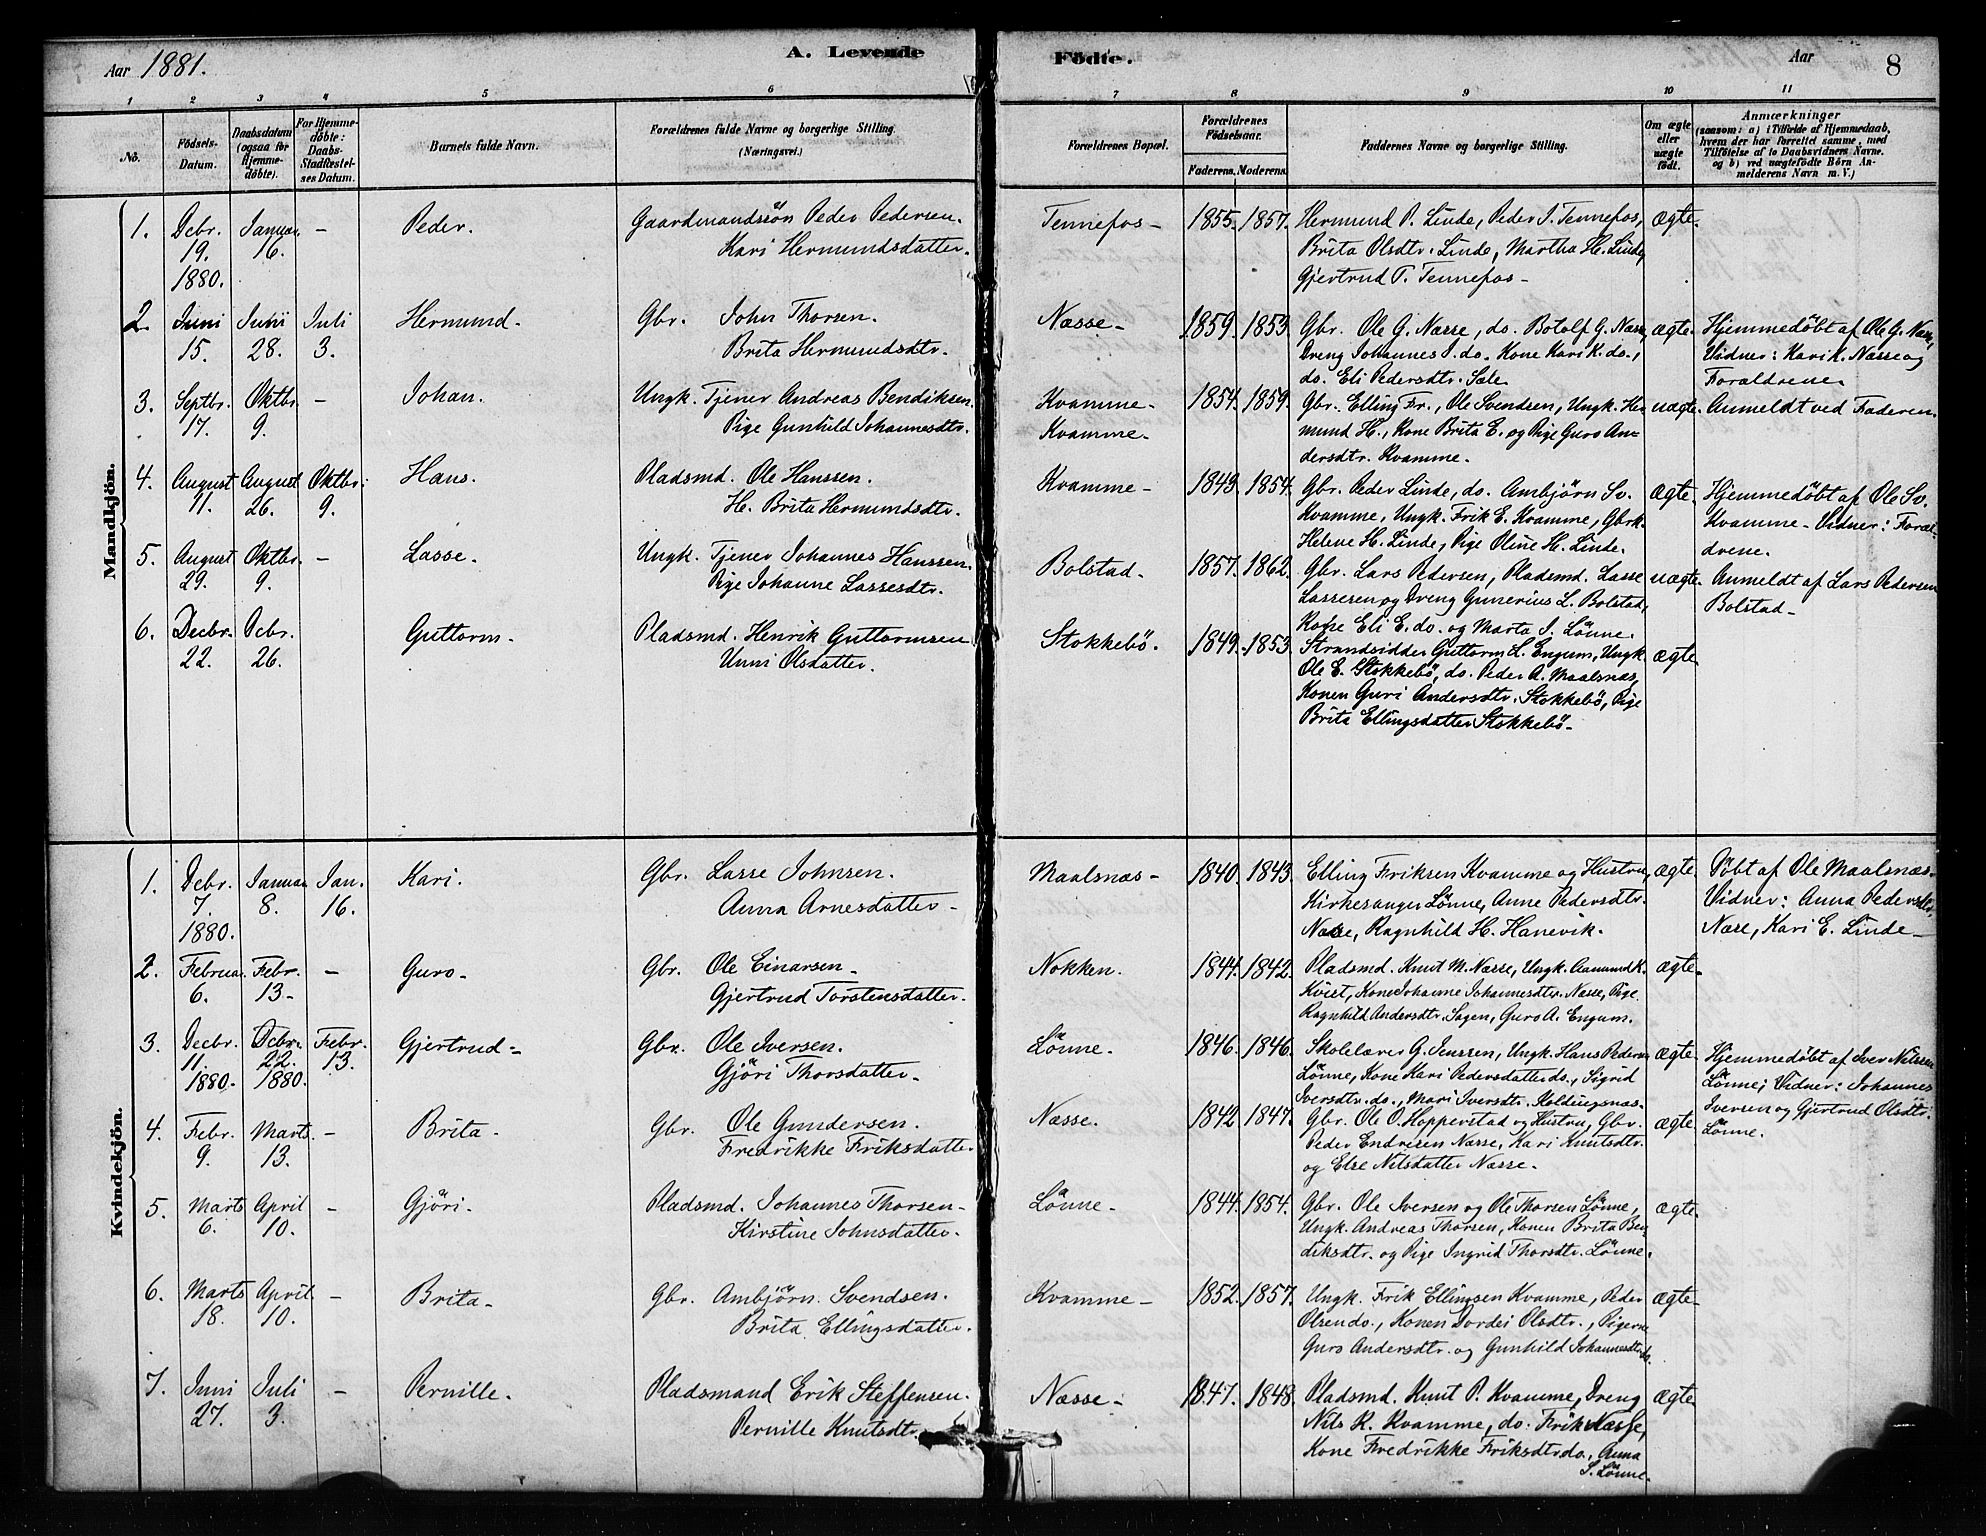 Aar 1881.
A. Levende
Födte.
Aar
8
1
2
3
4
5
6
7
8
9
10
11
No.
Födsels-
Datum.
Daabsdatum
(ogsaa for
Hjemme-
döbte).
For Hjemme-
döbte:
Daabs-
Stadfæstel-
ses Datum.
Barnets fulde Navn.
Forældrenes fulde Navne og borgerlige Stilling.
(Næringsvei.)
Forældrenes Bopæl.
Forældrenes
Födselsaar.
Faderens. Moderens.
Faddernes Navne og borgerlige Stilling.
Om ægte
eller
uægte
födt.
Anmærkninger
(saasom: a) i Tilfælde af Hjemmedaab,
hvem der har forrettet samme, med
Tilföielse af to Daabsvidners Navne.
og b) ved uægtefödte Börn An-
melderens Navn m. V.)
Mandkjön.
1. Debr. 19. 1880. Januar 16. - Peder. Gaardmandssön Peder Pedersen.
Kari Hermundsdatter.
Tennefos - 1855. 1857. Hermund P. Linde, Peder J. Tennefos, ægte.
Brita Olsdtr. Linde, Martha H. Linde,
Gjertrud P. Tennefos -
2. Juni 15. Juni 28. Juli 3. Hermund. Gbr. John Thorsen.
Brita Hermundsdtr.
Næsse - 1859. 1853. Gbr. Ole G. Næsse, do. Botolf G. Næsse, ægte. Hjemmedøbt af Ole G. Næsse,
Dreng Johannes J. do. Kone Kari K. do., Vidner: Kari K. Næsse og
do. Eli Pedersdtr. Sæle. Forældrene.
3. Septbr. 17. Oktbr. 9. - Johan. Ungk. Tjener Andreas Bendiksen.
Pige Gunhild Johannesdtr.
Kvamme - 1854. 1859. Gbr. Elling Fr., Ole Svendsen, Ungk. Her- uægte. Anmeldt ved Faderen.
Kvamme - mund H., Kone Brita E. og Pige Guro An-
dersdtr. Kvamme.
4. August 11. August 26. Oktbr. 9. Hans. Pladsmd. Ole Hanssen.
H. Brita Hermundsdtr.
Kvamme - 1849. 1854. Gbr. Peder Linde, do. Ambjörn Sv. ægte. Hjemmedöbt af Ole Sv.
Kvamme, Ungk. Frik E. Kvamme, Gbrk. Kvamme - Vidner: Foræl-
Helene H. Linde, Pige Oline H. Linde. drene.
5. August 29. Oktbr. 9. - Lasse. Ungk. Tjener Johannes Hanssen.
Pige Johanne Lassesdtr.
Bolstad. 1857. 1862. Gbr. Lars Pedersen, Pladsmd. Lasse uægte. Anmeldt af Lars Pedersen
Lassesen og Dreng Gunerius L. Bolstad, Bolstad -
Kone Eli E. do. og Marta J. Lönne.
6. Decbr. 22. Dcbr. 26. Guttorm. Pladsmd. Henrik Guttormsen
Unni Olsdatter.
Stokkebö. 1849. 1853. Strandsidder Guttorm L. Engum, Ungk. ægte
Ole E. Stokkebö, do. Peder A. Maalsnæs,
Konen Guri Andersdtr. Stokkebö, Pige
Brita Ellingsdatter Stokkebö -
Kvindekjön.
1. Debr. 7. 1880. Januar 8. Jan. 16. Kari. Gbr. Lasse Johnsen.
Anna Arnesdatter -
Maalsnæs - 1840. 1843. Elling Friksen Kvamme og Hustru, ægte. Döbt af Ole Maalsnæs.
Kirkesanger Lönne, Anne Pedersdtr. Vidner: Anna Pedersdtr.
Næsse, Ragnhild H. Hanevik. Næse, Kari E. Linde -
2. Februar 6. Febr. 13. - Guro. Gbr. Ole Einarsen -
Gjertrud Torstensdatter.
Nokken. 1844. 1842. Pladsmd. Knut M. Næsse, Ungk. Aamund K. ægte
Kvist, Kone Johanne Johannesdtr. Næsse, Pige
Ragnhild Andersdtr. Sagen, Guro A. Engum.
3. Decbr. 11. 1880. Dcbr. 22. 1880. Febr. 13. Gjertrud - Gbr. Ole Iversen.
Gjöri Thorsdatter -
Lönne. 1846. 1846. Skolelærer G. Jenssen, Ungk. Hans Pedersen ægte. Hjemmedöbt af Iver Nilssen
Lönne, Kone Kari Pedersdatter do., Sigrid Lönne; Vidner: Johannes
Iversdtr. do., Mari Iversdtr. Holdingsnæs. Iversen og Gjertrud Olsdtr.
Lönne.
4. Febr. 9. Marts 13. - Brita. Gbr. Ole Gundersen.
Fredrikke Friksdatter
Næsse. 1842 1847. Gbr. Ole O. Hopperstad og Hustru, Gbr. ægte.
Peder Endresen Næsse, Kari Knutsdtr.
og Else Nilsdatter Næsse.
5. Marts 6. April 10. - Gjöri. Pladsmd. Johannes Thorsen -
Kirstine Johnsdatter.
Lönne. 1844. 1854. Gbr. Ole Iversen og Ole Thorsen Lönne, ægte.
Ungk. Andreas Thorsen, Konen Brita Ben-
diksdtr. og Pige Ingrid Thorsdtr. Lönne.
6. Marts 18. April 10. - Brita - Gbr. Ambjörn Svendsen.
Brita Ellingsdatter.
Kvamme - 1852. 1857. Ungk. Frik Ellingsen Kvamme, Peder ægte
Olsen do., Konen Dordei Olsdtr., Pigerne
Guro Andersdtr. og Gunhild Johannesdtr. do.
7. Juni 27. Juli 3. - Pernille. Pladsmand Erik Steffensen.
Pernille Knutsdtr.
Næsse - 1847. 1848. Pladsmd. Knut P. Kvamme, Dreng ægte
Nils K. Kvamme, do. Frik Næsse,
Kone Fredrikke Friksdtr. do., Anna
S. Lönne -